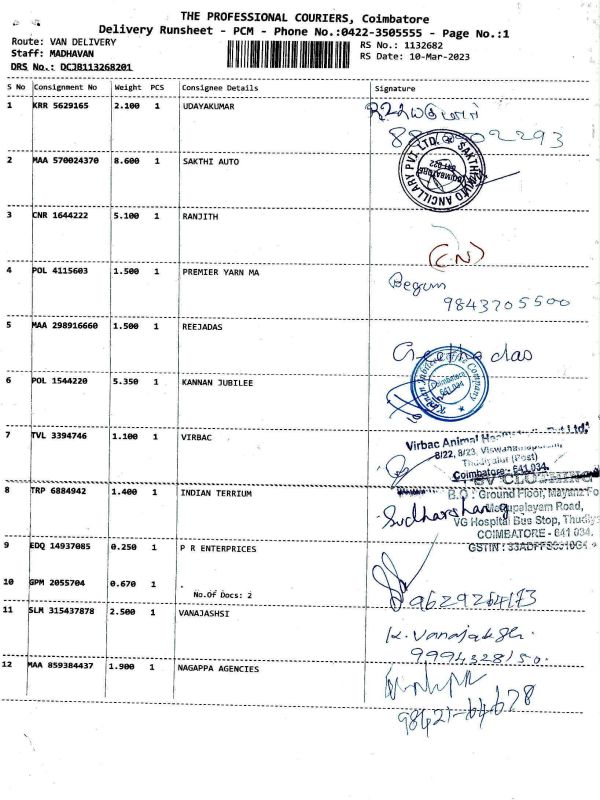 THE PROFESSIONAL COURIERS, Coimbatore
Delivery Runsheet - PCM - Phone No.:0422-3505555 - Page No.:1
Route: VAN DELIVERY RS No.: 1132682
Staff: MADHAVAN RS Date: 10-Mar-2023
DRS No.: DCJB113268201
S No Consignment No Weight PCS Consignee Details Signature
1 KRR 5629165 2.100 1 UDAYAKUMAR
2 MAA 570024370 8.600 1 SAKTHI AUTO
SAKTHI AUTO ANCILLARY PVT. LTD.
COIMBATORE
641 022
3 CNR 1644222 5.100 1 RANJITH
(C.N)
4 POL 4115603 1.500 1 PREMIER YARN MA
Begum
9843705500
5 MAA 298916660 1.500 1 REEJADAS
Geetha das
6 POL 1544220 5.350 1 KANNAN JUBILEE
Kannan Jubilee Coffee Company
Coimbatore
641 034
7 TVL 3394746 1.100 1 VIRBAC
Virbac Animal Pvt Ltd.
8/22, 8/23, Viswanathapuram,
Thudiyalur (Post)
Coimbatore- 641 034.
SV CLOTHING
8 TRP 6884942 1.400 1 INDIAN TERRIUM
B.O : Ground Floor, Mayanz Fo
Sudharshan
Road,
VG Hospital Bus Stop, Thudiy
COIMBATORE - 641 034.
9 EDQ 14937085 0.250 1 P R ENTERPRICES
10 GPM 2055704 0.670 1 .
No.Of Docs: 2
9629264173
11 SLM 315437878 2.500 1 VANAJASHSI
K. Vanajakshi.
9994328150.
12 MAA 859384437 1.900 1 NAGAPPA AGENCIES
98421-64678